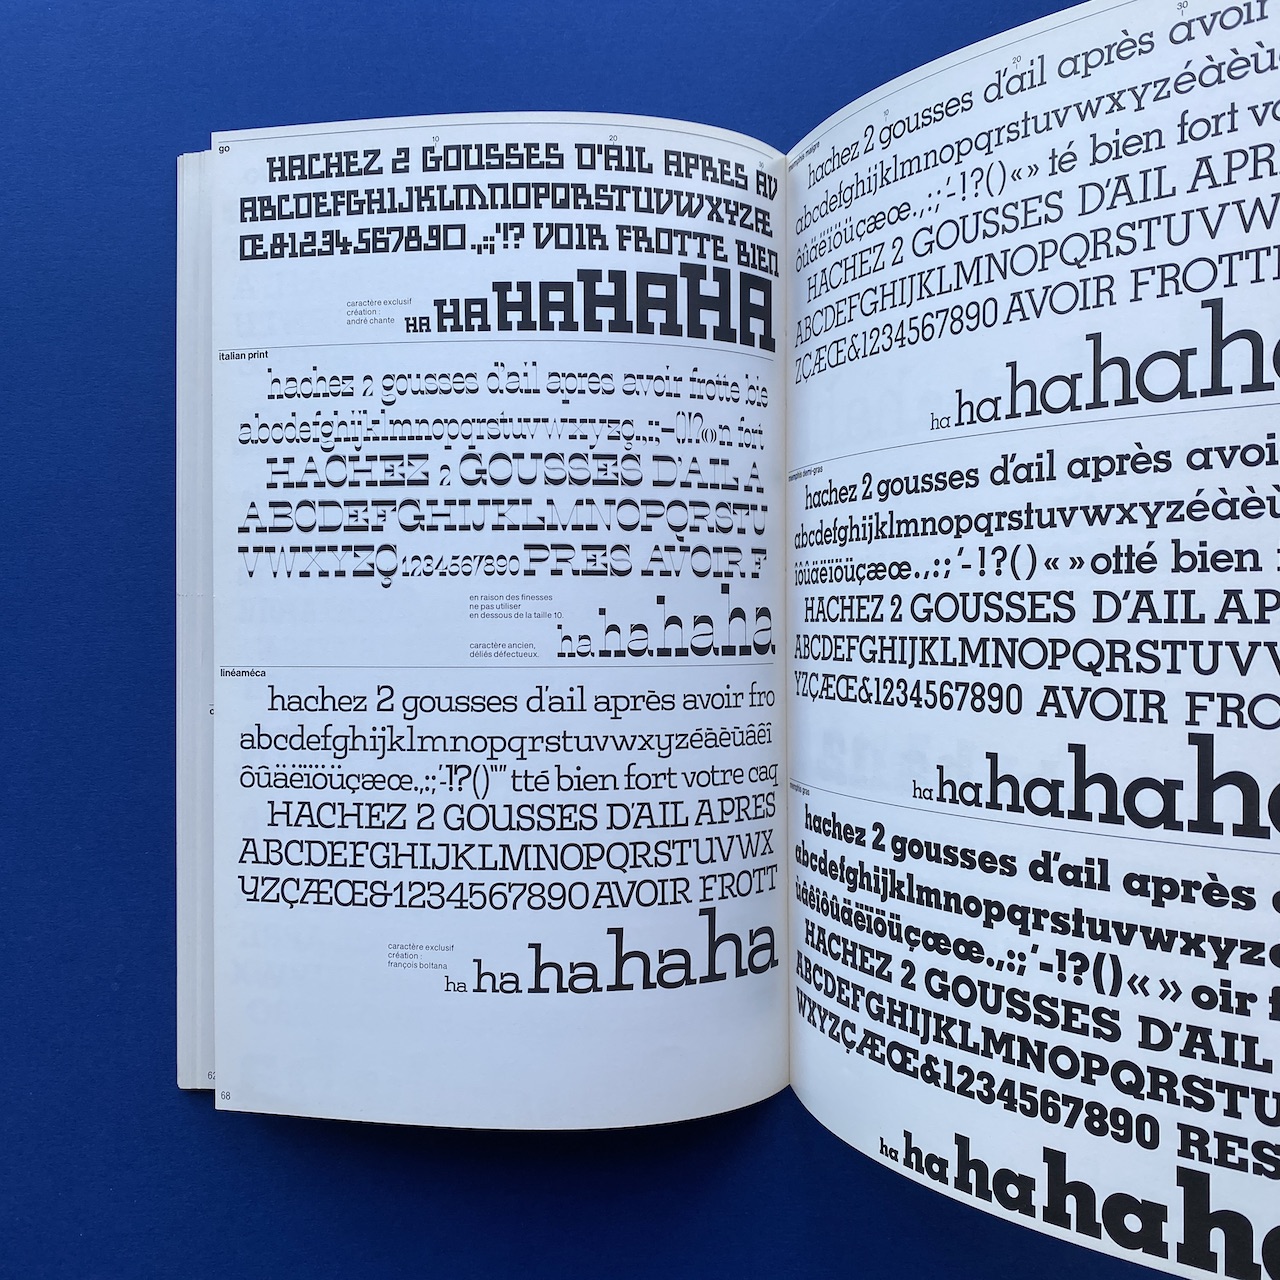 go
10 20 30
HACHEZ 2 GOUSSES D'AIL APRES AV
ABCDEFGHIJKLMNOPQRSTUVWXYZÆ
Œ&1234567890.,:;'!? VOIR FROTTE BIEN
caractère exclusif
création :
andré chante
HA HA HA HA HA
italian print
hachez 2 gousses d'ail apres avoir frotte bie
abcdefghijklmnopqrstuvwxyzç.,:;-()!?«»n fort
HACHEZ 2 GOUSSES D'AIL A
ABCDEFGHIJKLMNOPQRSTU
VWXYZÇ1234567890 PRES AVOIR F
en raison des finesses
ne pas utiliser
en dessous de la taille 10.
caractère ancien,
déliés défectueux.
ha ha ha ha ha
linéaméca
hachez 2 gousses d'ail après avoir fro
abcdefghijklmnopqrstuvwxyzéàèùâêî
ôûäëïöüçæœ.,:;'-!?()"" tté bien fort votre caq
HACHEZ 2 GOUSSES D'AIL APRES
ABCDEFGHIJKLMNOPQRSTUVWX
YZÇÆŒ&1234567890 AVOIR FROTT
caractère exclusif
création :
françois boltana
ha ha ha ha ha
62
68
memphis maigre
10 20 30
hachez 2 gousses d'ail après avoir
abcdefghijklmnopqrstuvwxyzéàèù
ôûäëïöüçæœ.,:;'-!?()«» té bien fort vo
HACHEZ 2 GOUSSES D'AIL APR
ABCDEFGHIJKLMNOPQRSTUVW
ZÇÆŒ&1234567890 AVOIR FROTT
ha ha ha ha h
memphis demi-gras
hachez 2 gousses d'ail après avoi
abcdefghijklmnopqrstuvwxyzéàèù
îôûäëïöüçæœ.,:;'-!?()«» otté bien
HACHEZ 2 GOUSSES D'AIL AP
ABCDEFGHIJKLMNOPQRSTUV
YZÇÆŒ&1234567890 AVOIR FRO
ha ha ha ha h
memphis gras
hachez 2 gousses d'ail après
abcdefghijklmnopqrstuvwxyz
ùâêîôûäëïöüçæœ.,:;'-!?()«» oir f
HACHEZ 2 GOUSSES D'AIL
ABCDEFGHIJKLMNOPQRSTU
WXYZÇÆŒ&1234567890 RES
ha ha ha ha h